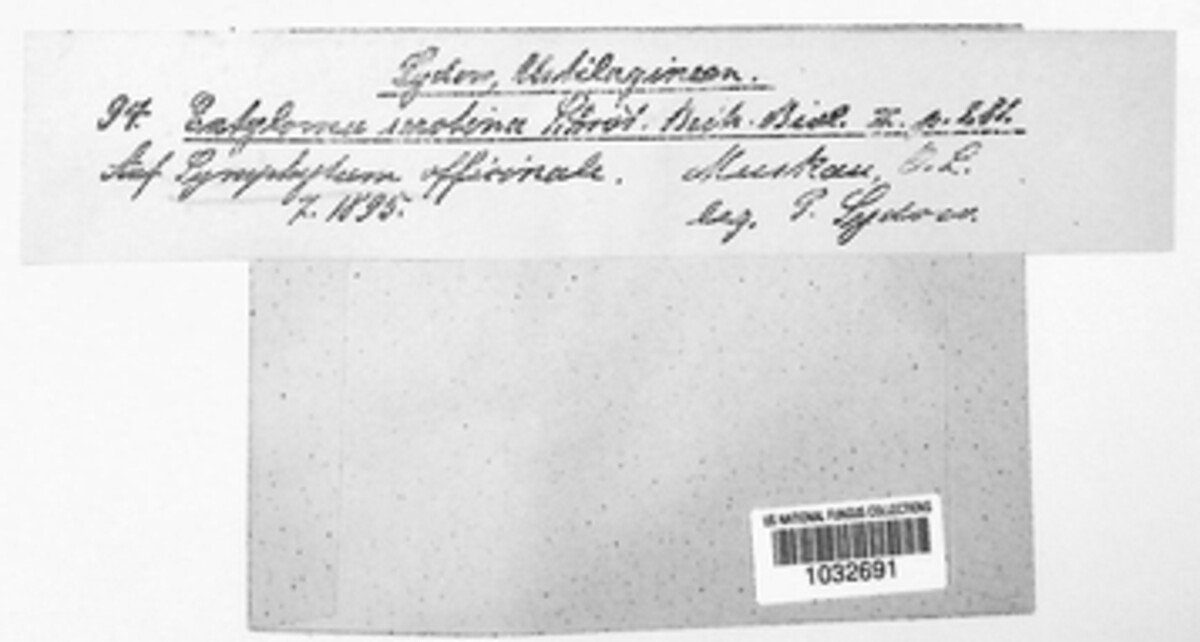 Sydow, Ustilagineen.
97. Entyloma serotina Schröt. Beitr. Biol. II. p.
Auf Symphytum officinale. Muskau, O. L.
7. 1895. leg. P. Sydow.
US NATIONAL FUNGUS COLLECTIONS
1032691